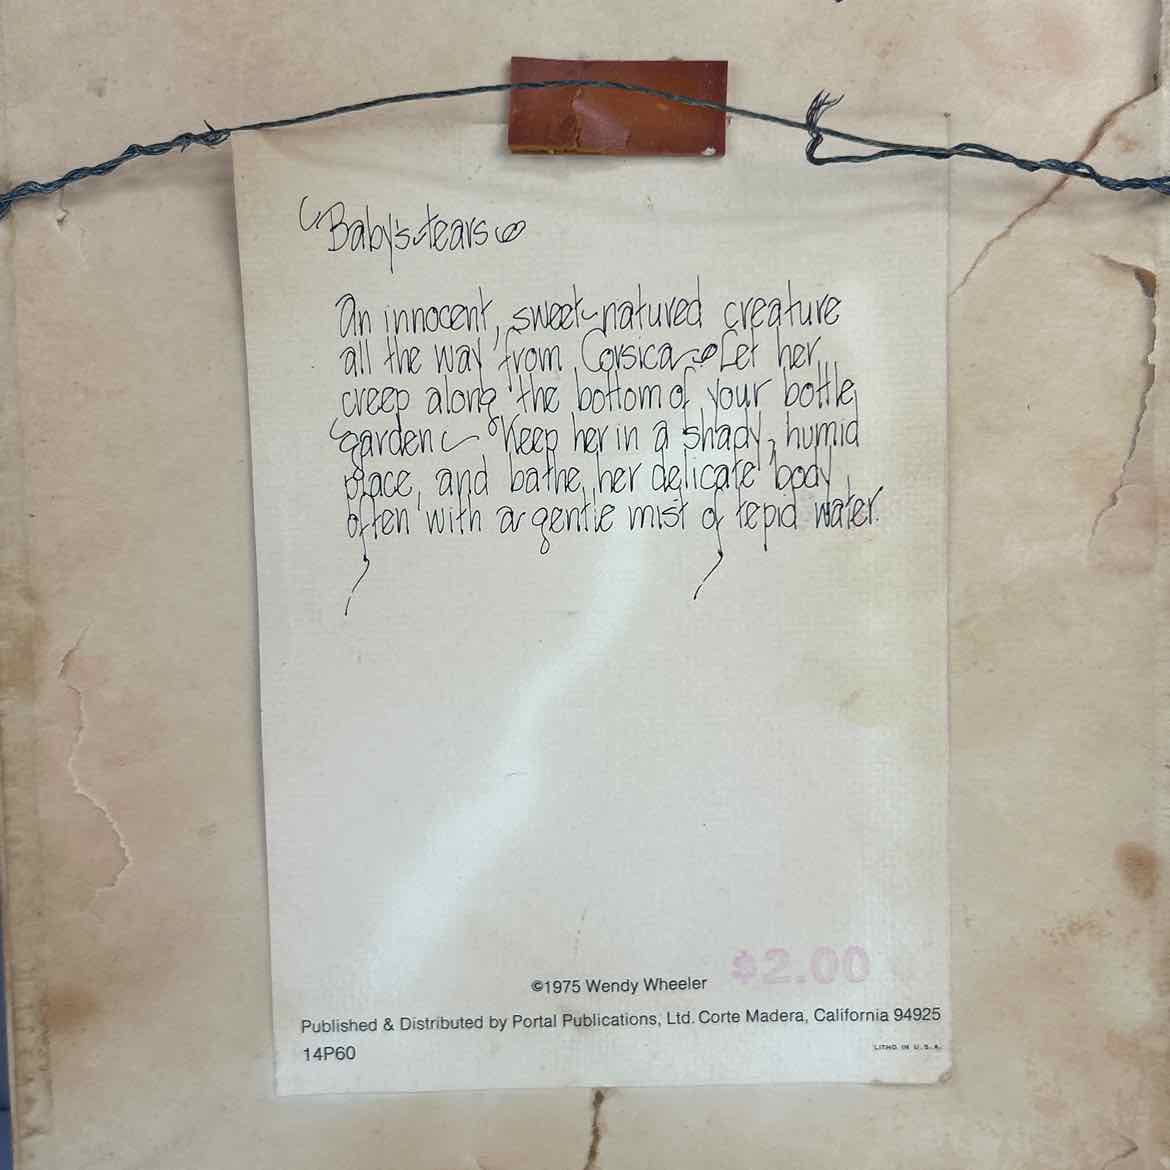 Baby's-tears
An innocent, sweet-natured creature
all the way from Corsica. Let her
creep along the bottom of your bottle
garden. Keep her in a shady, humid
place, and bathe her delicate body
often with a gentle mist of tepid water.
$2.00
©1975 Wendy Wheeler
Published & Distributed by Portal Publications, Ltd. Corte Madera, California 94925
14P60
LITHO. IN U.S.A.